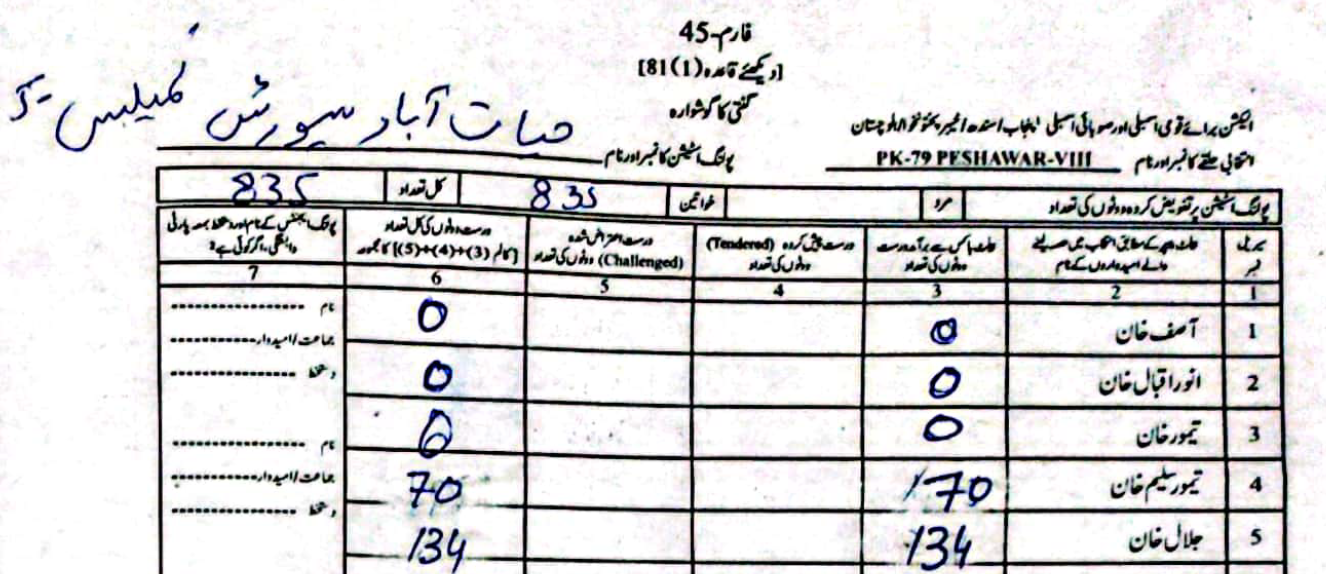 فارم-45
[دیکھئے قاعدہ (1)81]
گنتی کا گوشوارہ
الیکشن برائے قومی اسمبلی اور صوبائی اسمبلی پنجاب/سندھ/خیبر پختونخوا/بلوچستان
انتخابی حلقے کا نمبر اور نام PK-79 PESHAWAR-VIII پولنگ اسٹیشن کا نمبر اور نام حیات آباد سپورٹس کمپلیس
پولنگ اسٹیشن پر تفویض کردہ ووٹوں کی تعداد مرد خواتین 835 کل تعداد 835
سیریل نمبر
والے امیدواروں کے نام
ووٹوں کی تعداد
درست پیش کردہ (Tendered) ووٹوں کی تعداد
درست اعتراض شدہ (Challenged) ووٹوں کی تعداد
درست ووٹوں کی کل تعداد [کالم (3)+(4)+(5) کا مجموعہ]
پولنگ ایجنٹس کے نام اور دستخط بمعہ پارٹی وابستگی، اگر کوئی ہے:
1 2 3 4 5 6 7
1 آصف خان 0 0 نام
جماعت/امیدوار
2 انور اقبال خان 0 0 دستخط
3 تیمور خان 0 0 نام
4 تیمور سلیم خان 170 70 جماعت/امیدوار
دستخط
5 جلال خان 134 134